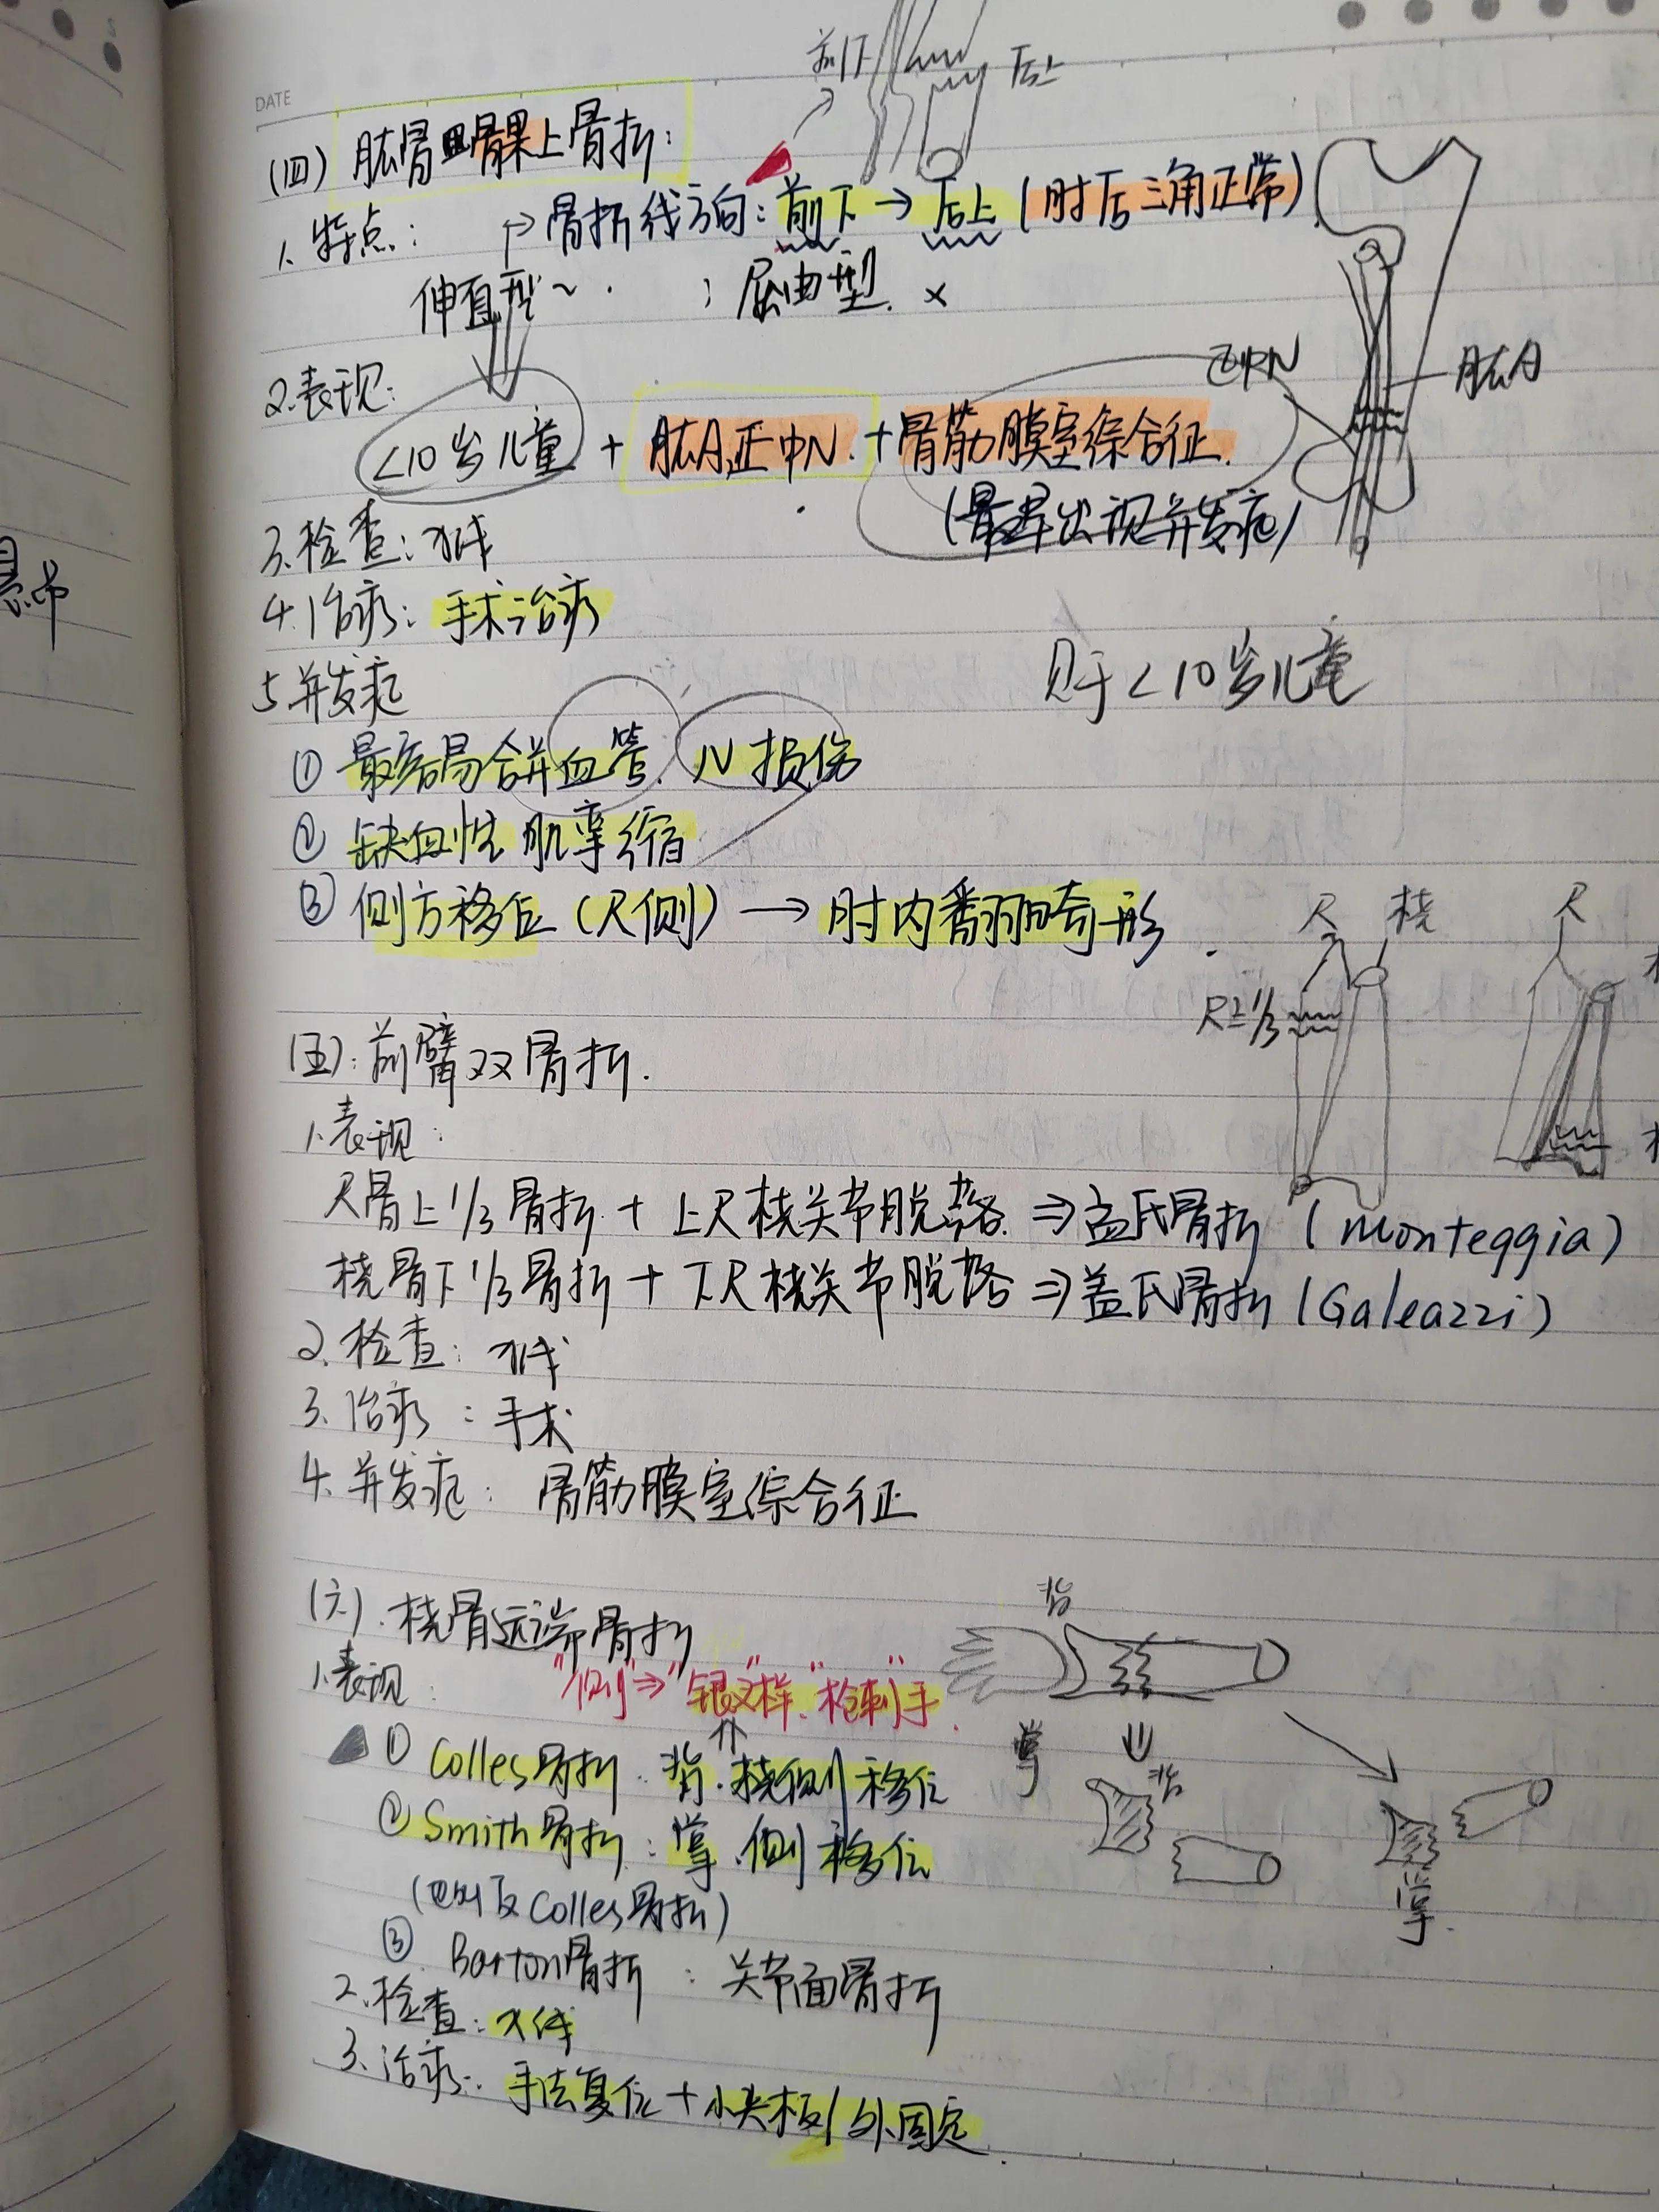 DATE
前下
后上
(四) 肱骨髁上骨折:
1. 特点: → 骨折线方向: 前下 → 后上 (肘后三角正常)
伸直型~. ; 屈曲型. ×
2. 表现:
<10岁儿童 + 肱A正中N. + 骨筋膜室综合征.
(最早出现并发症)
正中N
肱A
3. 检查: X线
4. 治疗: 手术治疗
5. 并发症
见于<10岁儿童
① 最容易合并血管. N损伤
② 缺血性肌挛缩
③ 侧方移位 (尺侧) → 肘内翻畸形.
尺 桡
尺上1/3
尺
(五): 前臂双骨折.
1. 表现:
尺骨上1/3骨折 + 上尺桡关节脱落. ⇒ 孟氏骨折 (Monteggia)
桡骨下1/3骨折 + 下尺桡关节脱落 ⇒ 盖氏骨折 (Galeazzi)
2. 检查: X线
3. 治疗: 手术
4. 并发症: 骨筋膜室综合征
(六). 桡骨远端骨折
1. 表现:
"侧" ⇒ "银叉"样. "枪刺"手.
① Colles骨折: 背. 桡侧移位
② Smith骨折: 掌. 侧移位
(也叫反Colles骨折)
③ Barton骨折: 关节面骨折
背
掌
背
掌
2. 检查: X线
3. 治疗: 手法复位 + 小夹板/外固定.
悬吊